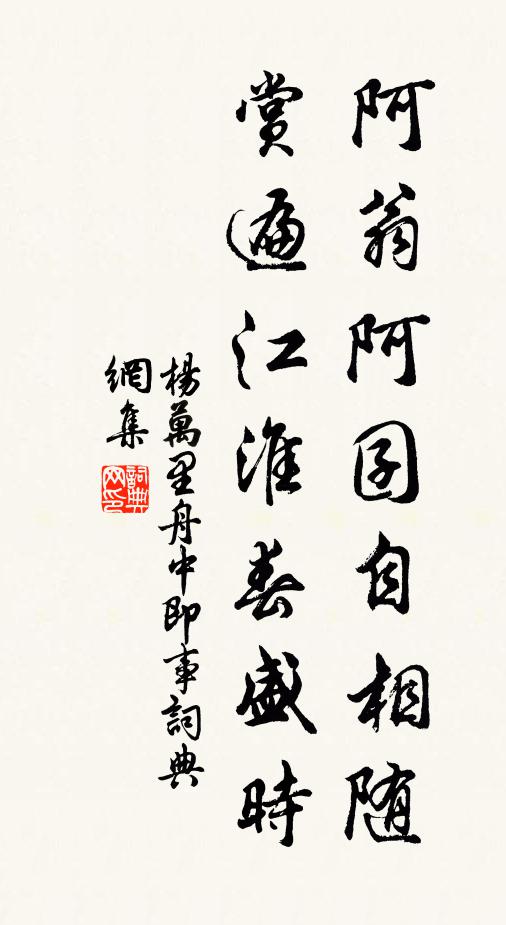 阿翁阿囝自相随
赏遍江淮春盛時
楊萬里舟中即事詞典
網集
詞典
网印